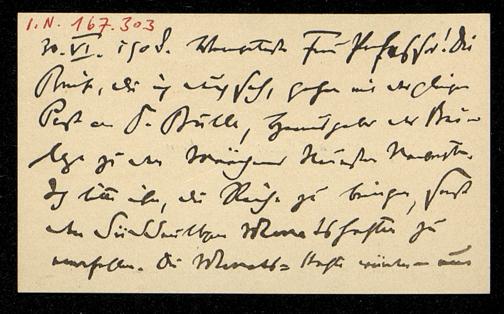 I.N. 167.303
30. VI. 1908. Verehrteste Frau Professor! Die
Briefe, die ich
Post an D. Bulle, Herausgeber der Bei-
lage zu den Münchner Neuesten Nachrichten.
Ich bitte ihn, die Reihe zu bringen, sonst
den Süddeutschen Monatsheften zu
empfehlen. Die Monats-Hefte würden aus